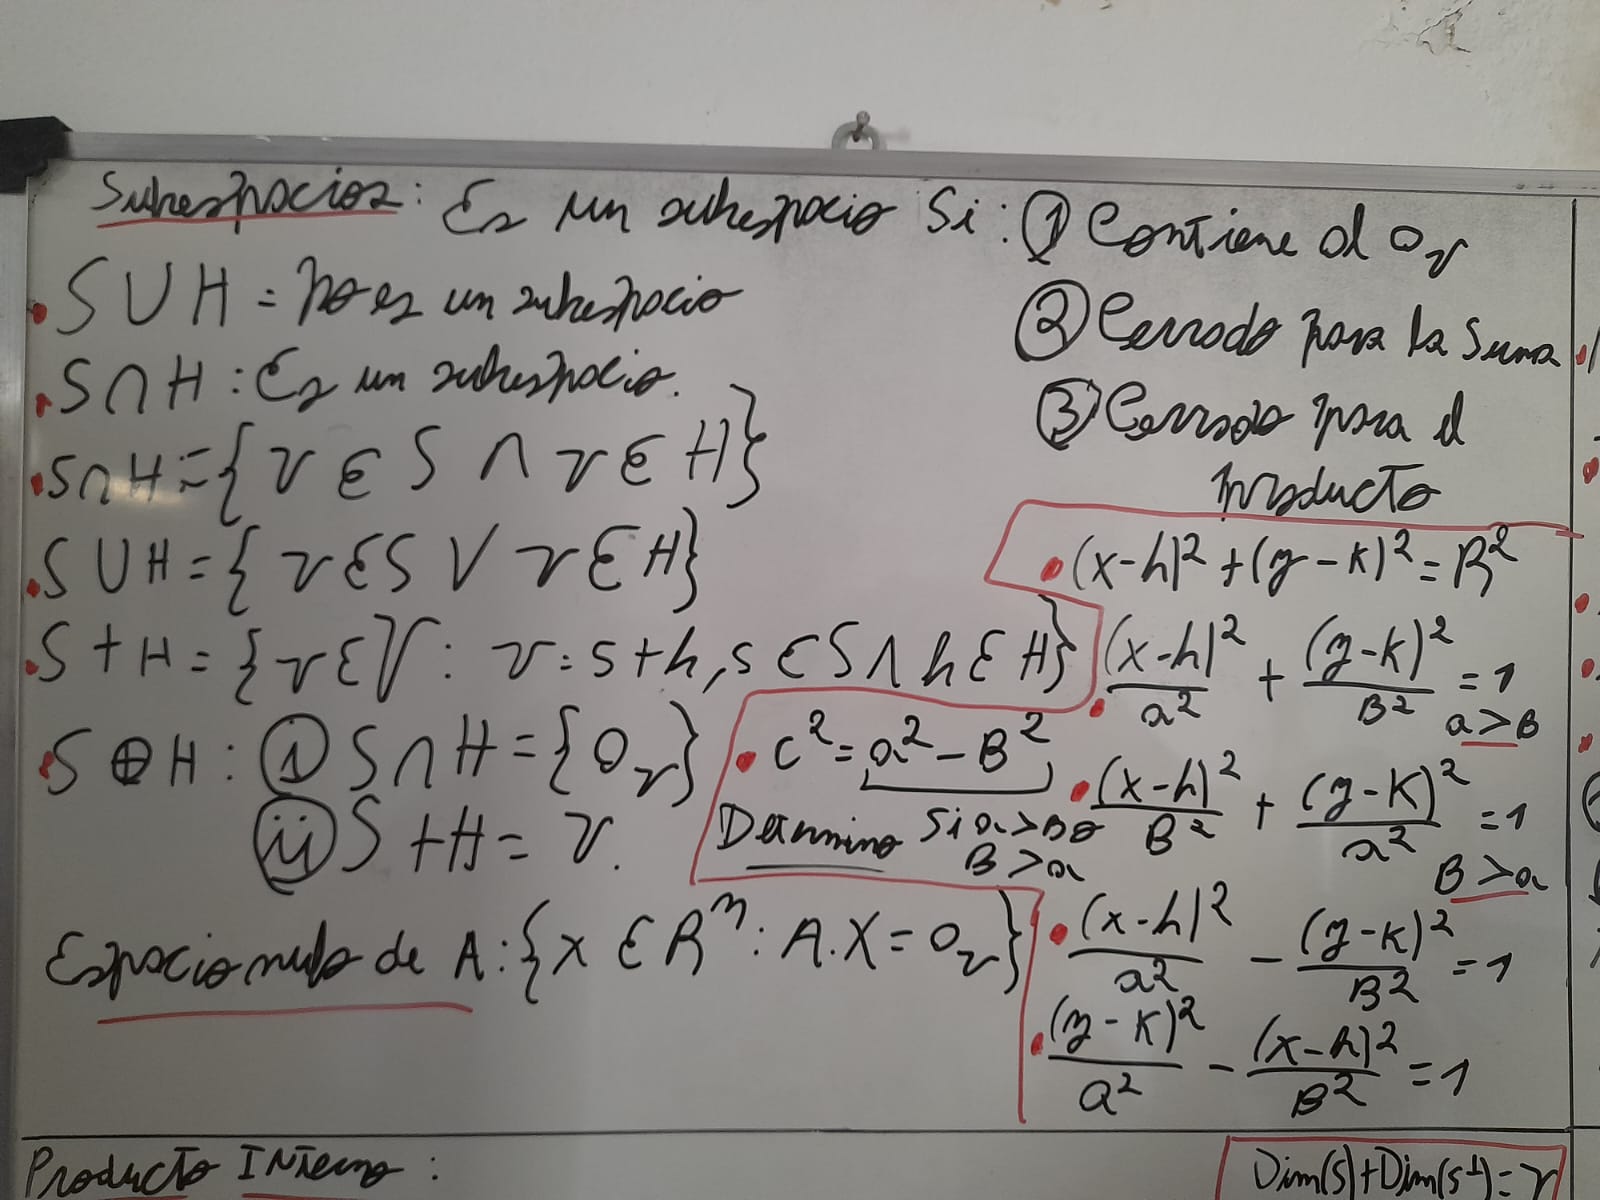 Subespacios: Es un subespacio Si: ① Contiene al 0v
② Cerrado para la Suma
③ Cerrado para el
producto
• S ∪ H = No es un subespacio
• S ∩ H : Es un subespacio.
• S ∩ H = {v ∈ S ∧ v ∈ H}
• S ∪ H = {v ∈ S ∨ v ∈ H}
• S + H = {v ∈ V : v = s + h, s ∈ S ∧ h ∈ H}
• S ⊕ H : ⓘ S ∩ H = {0v}
ⓘⓘ S + H = V.
Espacio nulo de A : {x ∈ R^n : A.X = 0v}
• (x-h)² + (y-k)² = R²
• (x-h)²/a² + (y-k)²/B² = 1
a > B
• C² = a² - B²
Determino Si a > B o
B > a
• (x-h)²/B² + (y-k)²/a² = 1
B > a
• (x-h)²/a² - (y-k)²/B² = 1
• (y-k)²/a² - (x-h)²/B² = 1
Producto INterno :
Dim(S) + Dim(S⊥) = V